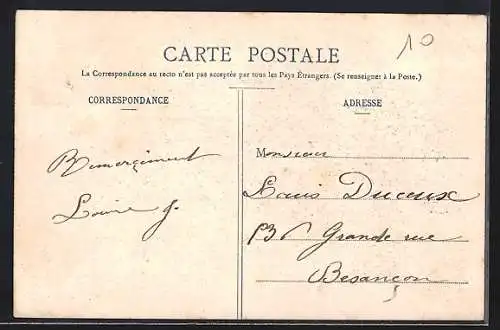 CARTE POSTALE
10
La Correspondance au recto n'est pas acceptée par tous les Pays Étrangers. (Se renseigner à la Poste.)
CORRESPONDANCE
Remerçiment
Louise J.
ADRESSE
Monsieur
Louis Duceux
Grande rue
Besançon